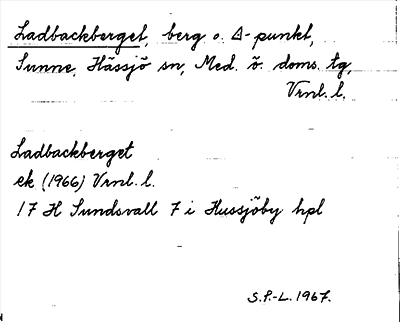 Ladbackberget, berg o. Δ-punkt,
Sunne, Hässjö sn, Med. ö. doms. tg,
Vrnl. l.
Ladbackberget
ek (1966) Vrnl. l.
17 H Sundsvall 7 i Hussjöby hpl
S.P.-L. 1967.